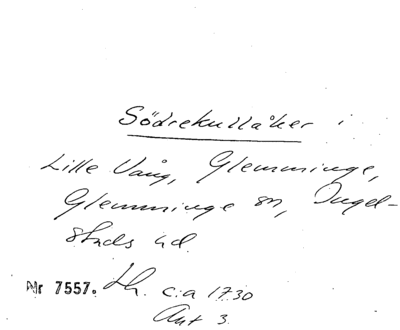 Södrekullåker i
Lille Vång, Glemminge,
Glemminge sn, Ingel-
stads hd.
Nr 7557. Lh. c:a 1730
Akt 3.